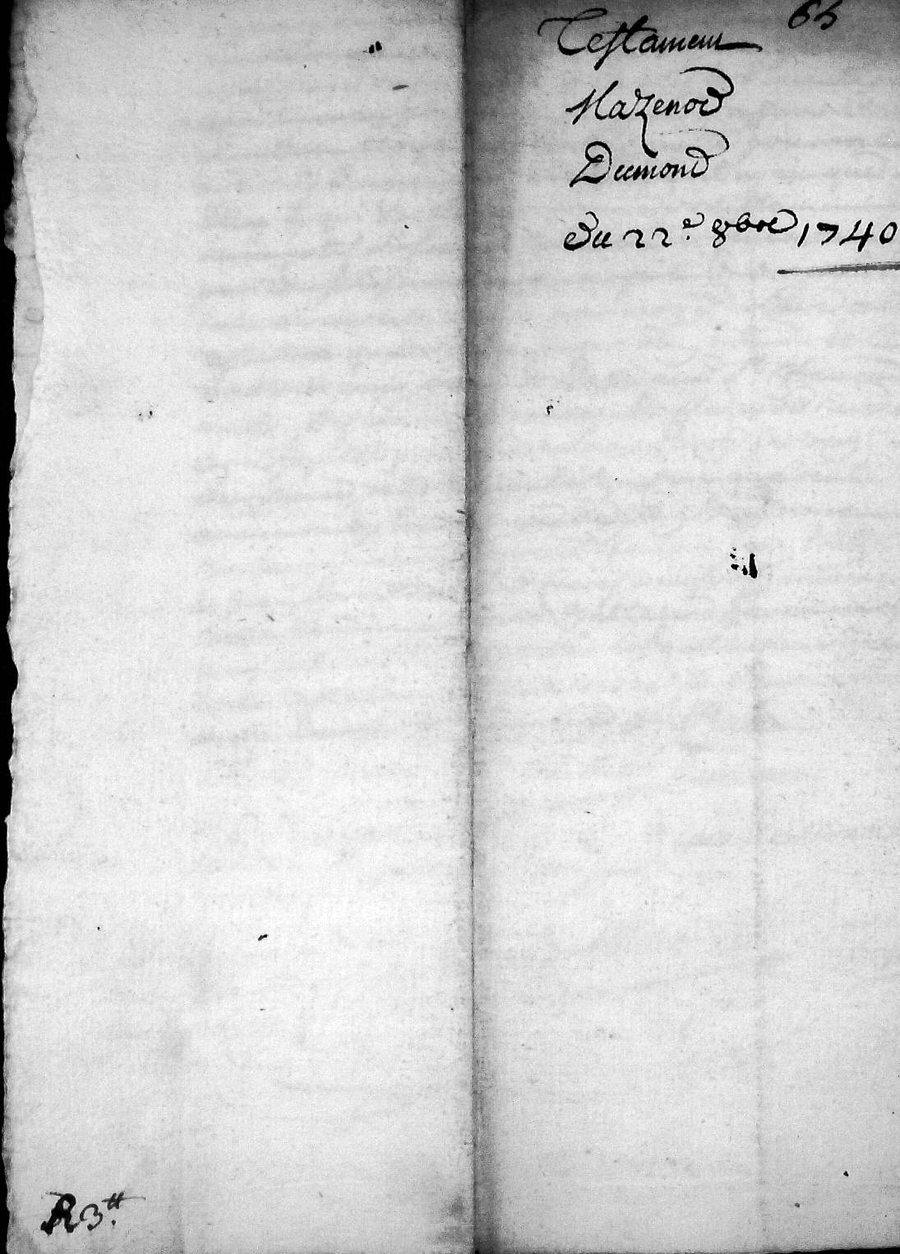 65
Testament
Mazenod
Dumond
Du 22e 8bre 1740
R 3tt